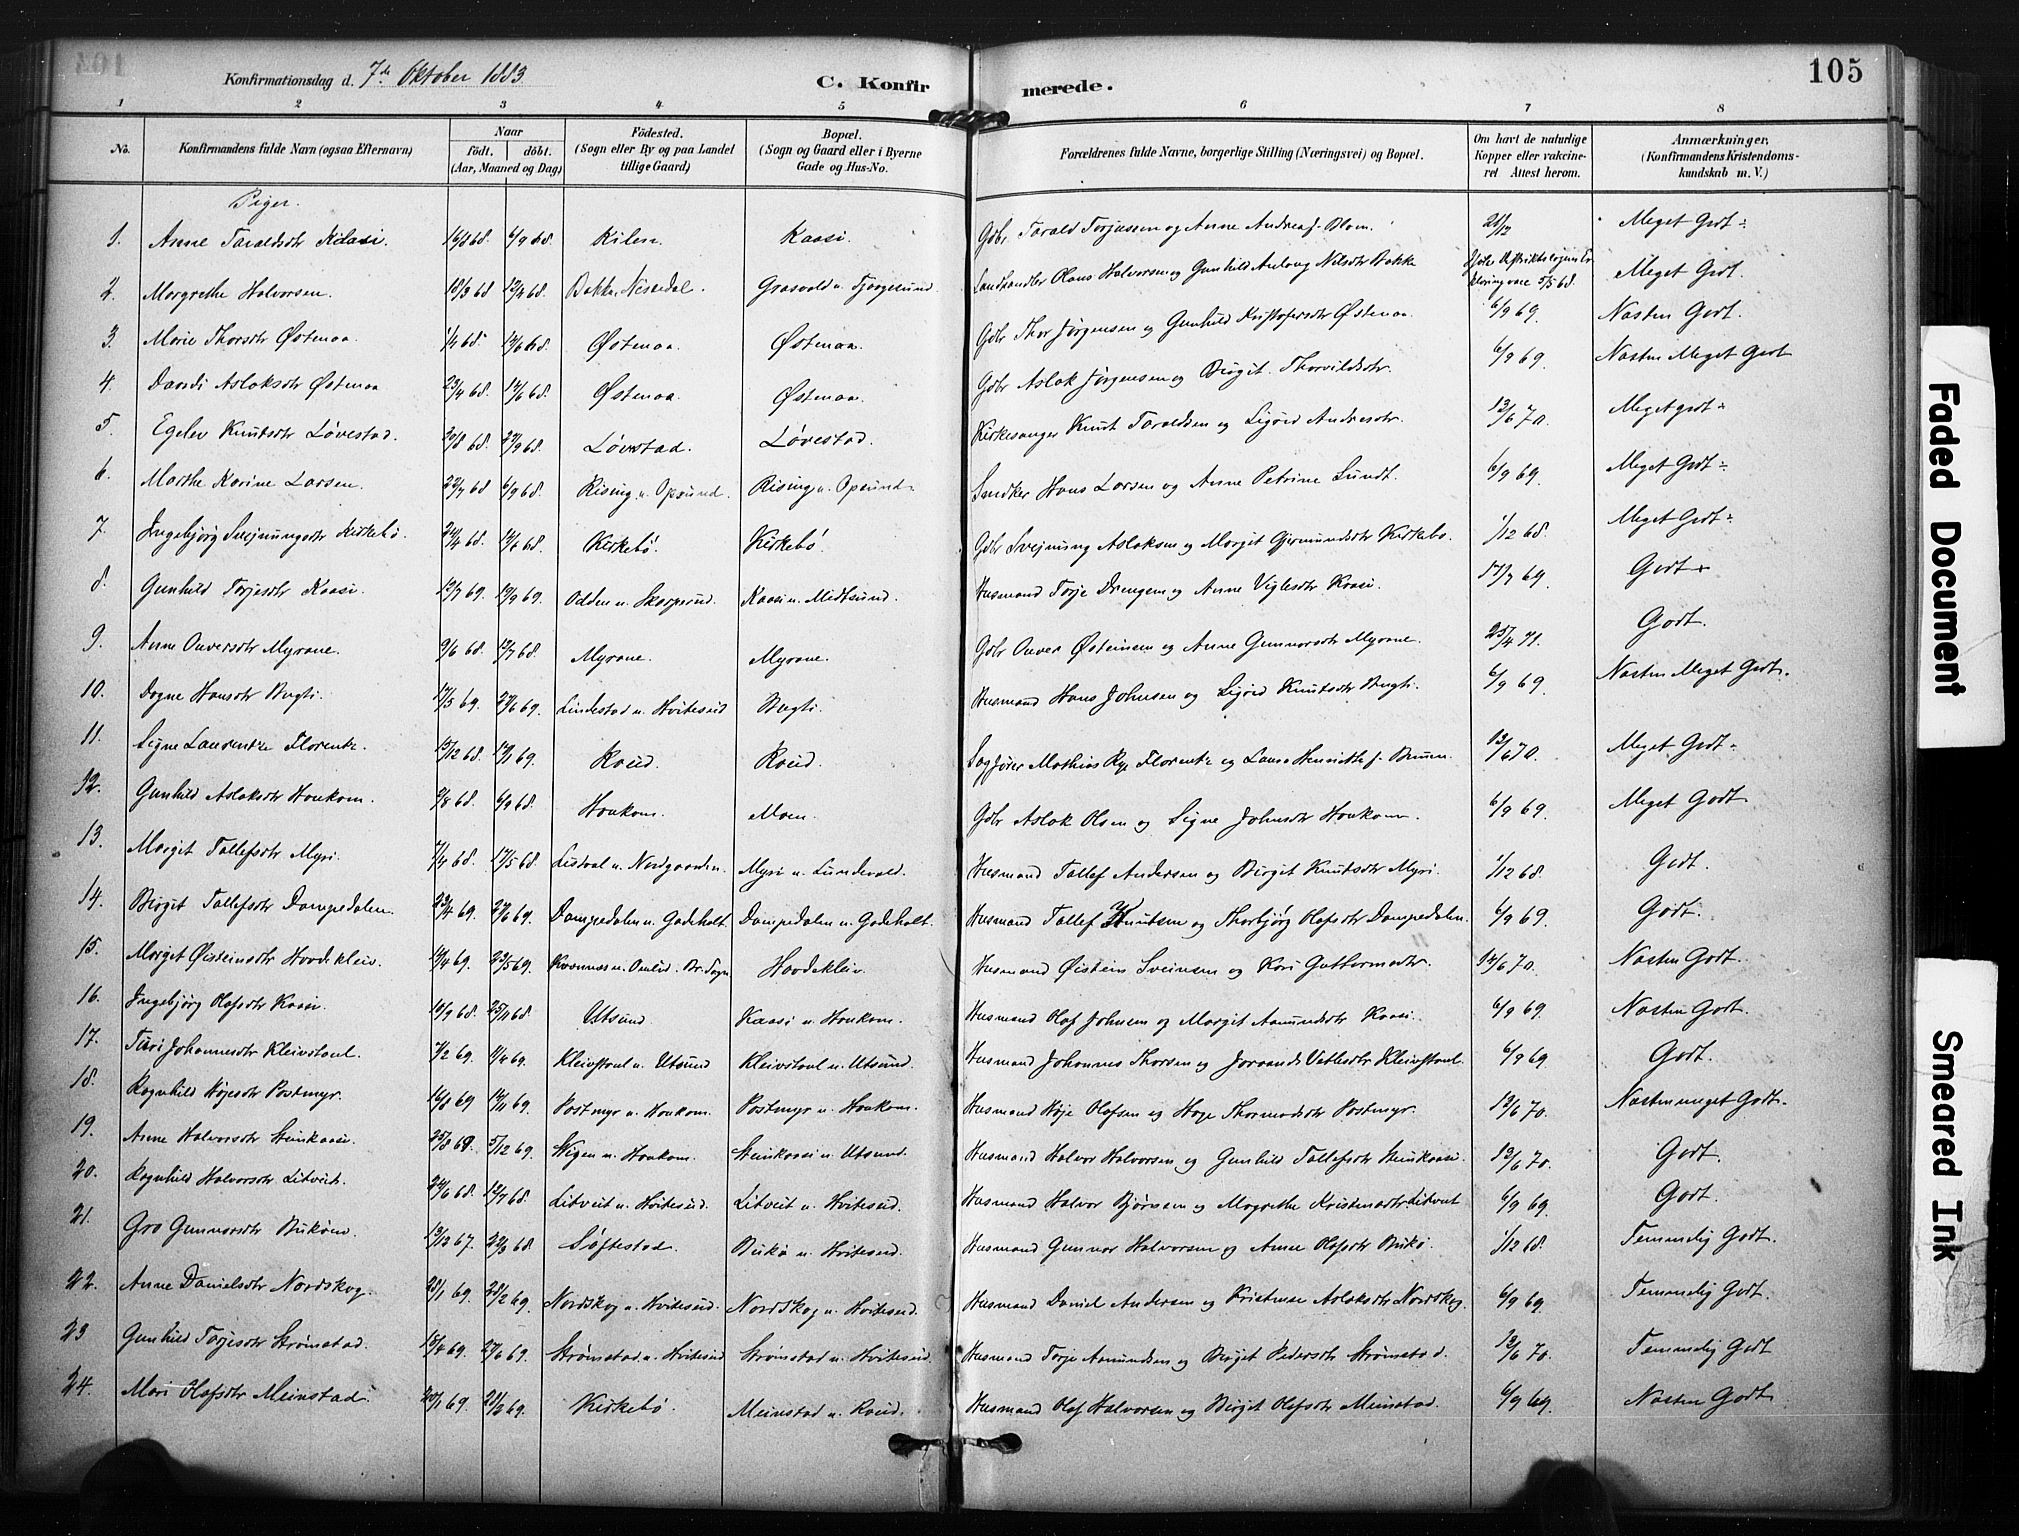 Konfirmationsdag d. 7de Oktober 1883. C. Konfirmerede. 105
1 2 3 4 5 6 7 8
No. Konfirmandens fulde Navn (ogsaa Efternavn) Naar födt. döbt. (Aar, Maaned og Dag) Födested. (Sogn eller By og paa Landet tillige Gaard) Bopæl. (Sogn og Gaard eller i Byerne Gade og Hus-No. Forældrenes fulde Navne, borgerlige Stilling (Næringsvei) og Bopæl. Om havt de naturlige Kopper eller vakcineret Attest herom. Anmærkninger, (Konfirmandens Kristendomskundskab m. V.)
Piger.
1. Anne Taraldsdtr 16/8 68. 6/9 68. Kilen. Kaasi. Gdbr Tarald Torjussen og Anne Andrea f. Blom. Meget Godt
2. Margrethe Halvorsen. 18/3 68 Bakke, Nissedal. Landhandler Hans Halvorsen og Gunhild Aulaug Nilsdtr Bakke 5/5 68. Meget Godt.
3. Marie Thorsdtr Østenaa. 1/4 68 14/6 68. Østenaa. Østenaa. Gdbr Thor Jørgensen og Gunhild Kristofersdtr Østenaa 6/9 69. Næsten Godt.
4. Aslaksdtr Østenaa 23/4 68. 14/6 68. Østenaa. Østenaa. Gdbr Aslak Jørgensen og Birgit Thorvildsdtr. 6/9 69. Næsten Meget Godt
5. Egelev Knutsdtr Løvestad. 20/8 68. 27/9 68. Løvestad. Løvestad. Kirkesanger Knut Taraldsen og Sigrid Andresdtr. 12/6 70. Meget godt
6. Marthe Karine Larsen. 22/7 68 6/9 68. Rising u. Opsund. Rising u. Opsund. Snedker Hans Larsen og Anne Petrine Lundt. 6/9 69. Meget Godt
7. Ingebjørg Svejnungsdtr Kirkebø. 14/6 68. Kirkebø. Kirkebø. Gdbr Svejnung Aslaksen og Margit Gjermundsdtr Kirkebø. 1/12 68. Meget Godt
8. Gunhild Torjesdtr Kaasi. 12/7 69. 19/9 69. Odden u. Skarpsrud. Kaasi u. Midtsund. Husmand Torje Drengsen og Anne Viglesdtr Kaasi. 17/7 69. Godt
9. Anne Onversdtr Myrane. 9/6 68. 12/7 68. Myrane. Myrane. Gdbr Onver Østeinsen og Anne Gunnarsdtr Myrane. 25/4 71. Godt.
10. Dagne Hansdtr Bugti. 17/5 69. 27/6 69. Lindestad u. Hviteseid Bugti. Husmand Hans Johnsen og Sigrid Knutsdtr Bugti. 6/9 69. Næsten Meget Godt.
11. Signe Laurentze Florentz. 15/12 68. Roeid. Roeid. Sagfører Mathias Rye Florentz og Laura Henriette f. Bruun. 12/6 70. Meget Godt
12. Gunhild Aslaksdtr Honkom. 2/8 68. 6/9 68. Honkom. Moen. Gdbr Aslak Olsen og Signe Johnsdtr Honkom 6/9 69. Meget Godt
13. Margit Tallefsdtr Myri. 7/4 68. 17/5 68. Myri u. Lundevald. Husmand Tallef Andersen og Birgit Knutsdtr Myri. 1/12 68. Godt.
14. Birgit Tallefsdtr Dampedalen. 23/4 69. 27/6 69. Dampedalen u. Gadeholt. Dampedalen u. Gadeholt. Husmand Tallef Knutsen og Thorbjørg Olafsdtr Dampedalen. 6/9 69. Godt.
15. Margit Øisteinsdtr Hovdekleiv. 14/4 69. 23/5 69. Hovdekleiv. Husmand Øistein Sveinsen og Kari Guttormsdtr. 12/6 70. Næsten Godt.
16. Ingebjørg Olafsdtr Kaasi. 10/9 68. 25/11 68. Utsund. Kaasi u. Honkom. Husmand Olaf Johnsen og Margit Aamundsdtr Kaasi. 6/9 69. Næsten Godt.
17. Turi Johannesdtr Kleivstaul. 7/2 69. 11/4 69. Kleivstaul u. Utsund Kleivstaul u. Utsund. Husmand Johannes Thorsen og Joraand Vetlesdtr Kleivstaul. 6/9 69. Godt.
18. Ragnhild Højesdtr Postmyr. 16/8 69 14/11 69. Postmyr u. Honkom. Postmyr u. Honkom. Husmand Høje Olafsen og Hæge Thormodsdtr Postmyr. 12/6 70. Næsten meget Godt.
19. Anne Halvorsdtr Steinkaasi. 25/8 69. 5/12 69. Stigen u. Honkom. Steinkaasi u. Utsund. Husmand Halvor Halvorsen og Gunhild Tallefsdtr Steinkaasi. 12/6 70. Godt.
20. Ragnhild Halvorsdtr Litveit. 24/6 68. 12/7 68. Litveit u. Hvitesei d. Litveit u. Hviteseid. Husmand Halvor Bjørnsen og Margrethe Kristensdtr Litveit 6/9 69. Godt.
21. Gro Gunnarsdtr 13/12 67. 22/3 68. Søftestad. Bukø u. Hviteseid. Husmand Gunnar Halvorsen og Anne Olafsdtr Bukø. 1/12 68. Temmelig Godt.
22. Anne Danielsdtr Nordskog. 28/1 69. 28/2 69. Nordskog u. Hviteseid. Nordskog u. Hviteseid. Husmand Daniel Andersen og Kristense Aslaksdtr Nordskog. 6/9 69. Temmelig Godt.
23 Gunhild Torjesdtr Strømstad. 18/4 69. 27/6 69. Strømstad u. Hviteseid Strømstad u. Hviteseid. Husmand Torje Aamundsen og Birgit Pedersdtr Strømstad. 12/6 70. Temmelig Godt
24. Mari Olafsdtr Meinstad. 20/1 69. 21/2 69. Kirkebø. Meinstad u. Roeid. Husmand Olaf Halvorsen og Birgit Olafsdtr Meinstad. 6/9 69. Næsten Godt.
Faded Document
Smeared Ink